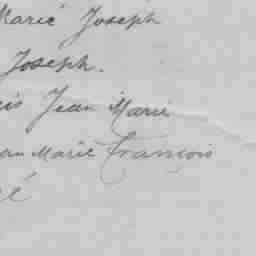 Marie Joseph
Joseph.
Jean Marie
Marie François